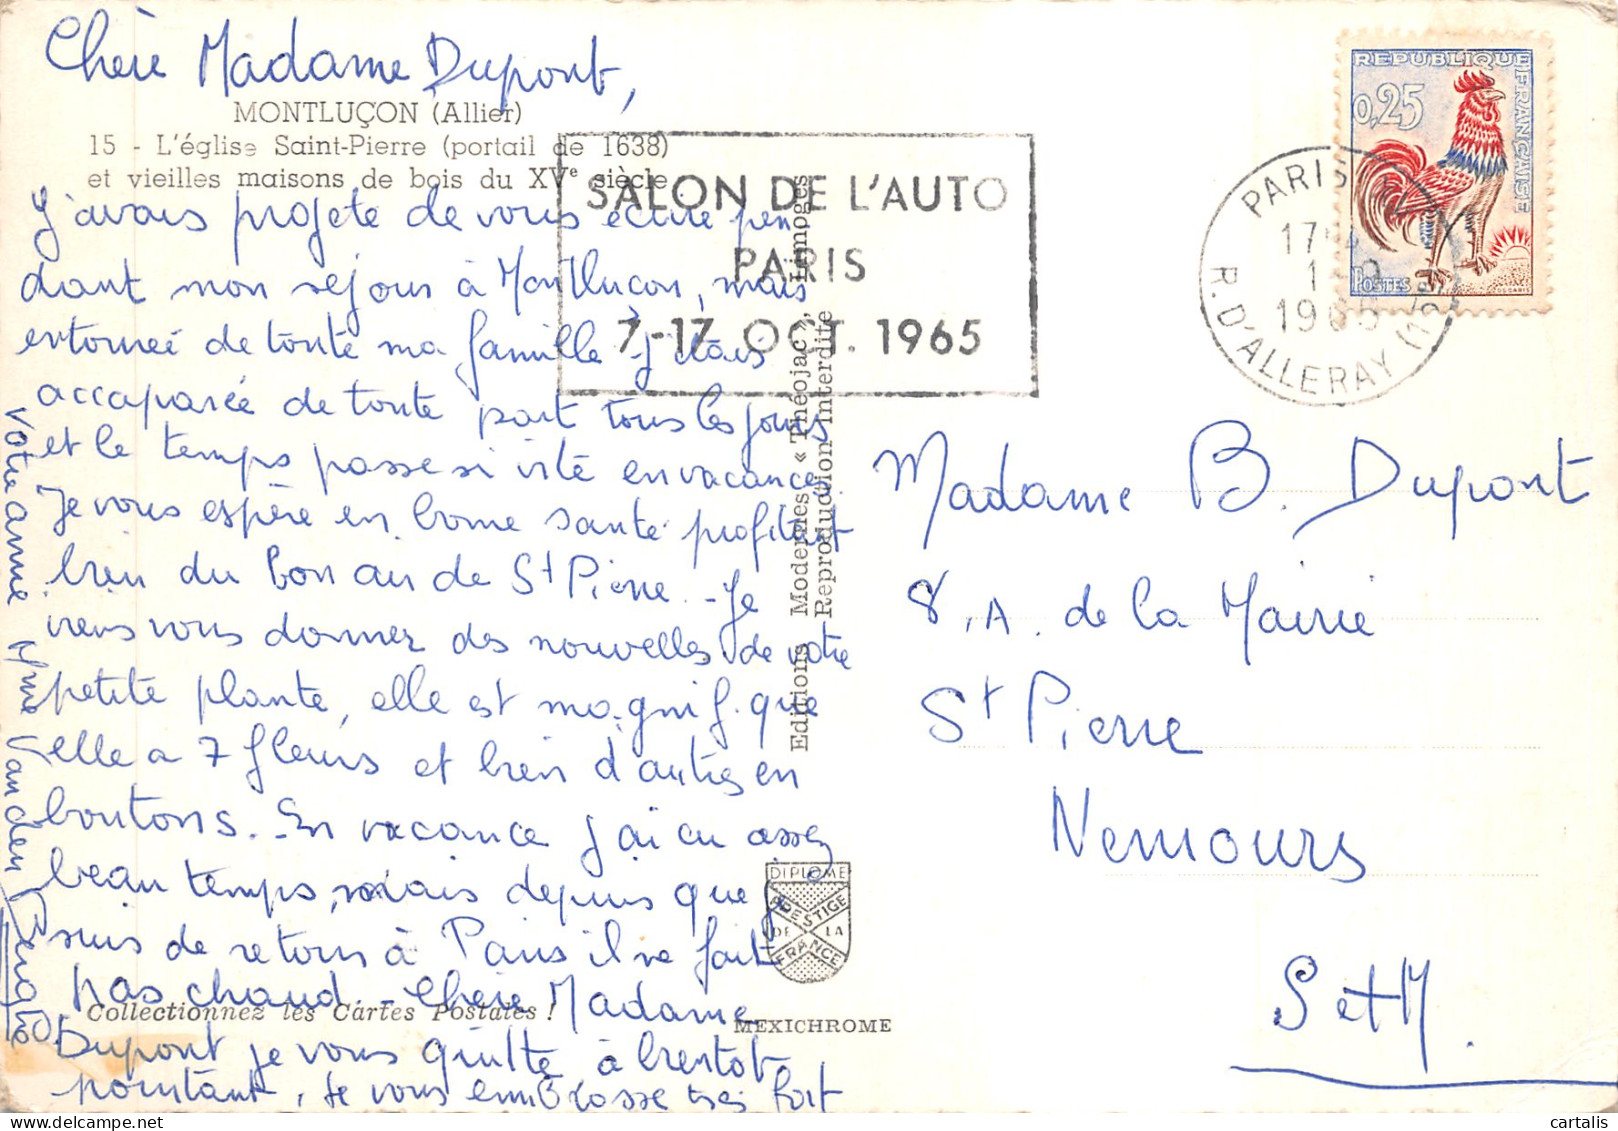 Chère Madame Dupont,
MONTLUÇON (Allier)
15 - L'église Saint-Pierre (portail de 1638)
et vieilles maisons de bois du XVe siècle
J'avais projeté de vous écrire pen
dant mon séjour à Montluçon, mais
entourée de toute ma famille j'étais
accaparée de toute part tous les jours
et le temps passe si vite en vacances
Je vous espère en bonne santé profitant
bien du bon air de St Pierre. - Je
viens vous donner des nouvelles de votre
petite plante, elle est magnifique
elle a 7 fleurs et bien d'autres en
boutons. - En vacance j'ai eu assez
beau temps, mais depuis que je
suis de retour à Paris il ne fait
pas chaud - Chère Madame
Dupont je vous quitte à bientôt
pourtant. Je vous embrasse très fort
Votre amie Mme Vanden
Collectionnez les Cartes Postales !
SALON DE L'AUTO
PARIS
7-17 OCT. 1965
Editions Modernes « Théojac », Limoges
Reproduction interdite
DIPLOME
PRESTIGE
DE LA
FRANCE
MEXICHROME
REPUBLIQUE FRANÇAISE
0,25
POSTES
PARIS
17
1965
R. D'ALLERAY (15e)
Madame B. Dupont
8, A. de la Mairie
St Pierre
Nemours
S et M.
© cartalis